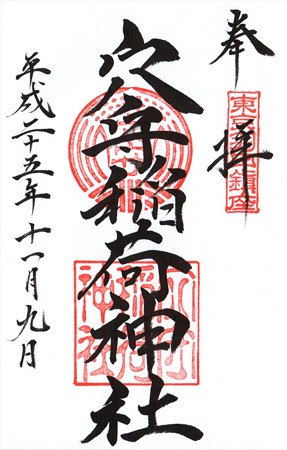 奉拝
東國鎮座
穴守稲荷神社
平成二十五年十一月九日